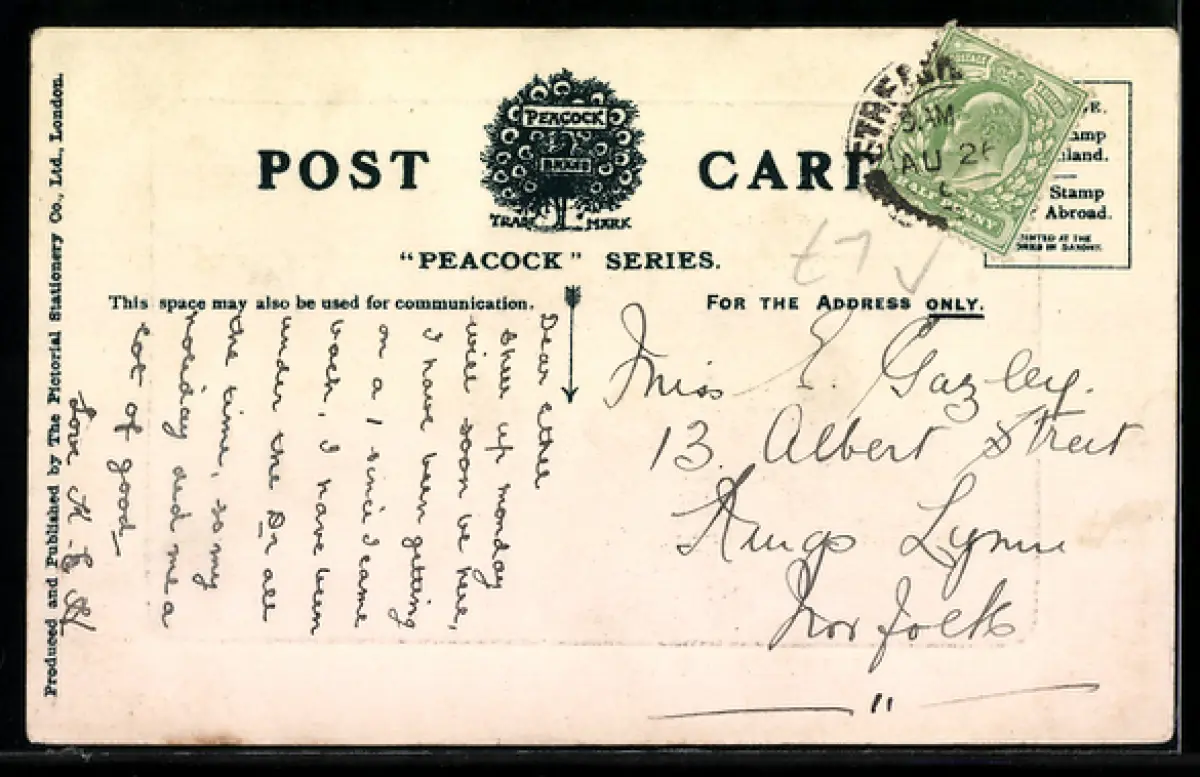 POST CARD
PEACOCK
BRAND
TRADE MARK
"PEACOCK" SERIES.
This space may also be used for communication.
FOR THE ADDRESS ONLY.
Produced and Published by The Pictorial Stationery Co., Ltd., London.
Dear Ethel
Sheer up monday
will soon be here,
I have been getting
on a 1 since I came
back, I have been
under the Dr all
the time, so my
holiday did me a
Lot of good_
Love
Miss E. Gazley.
13. Albert Street
Kings Lynn
Norfolk
"
£7
9 AM
AU 26
POSTAGE
HALFPENNY
Inland.
Stamp
Abroad.
PRINTED AT THE